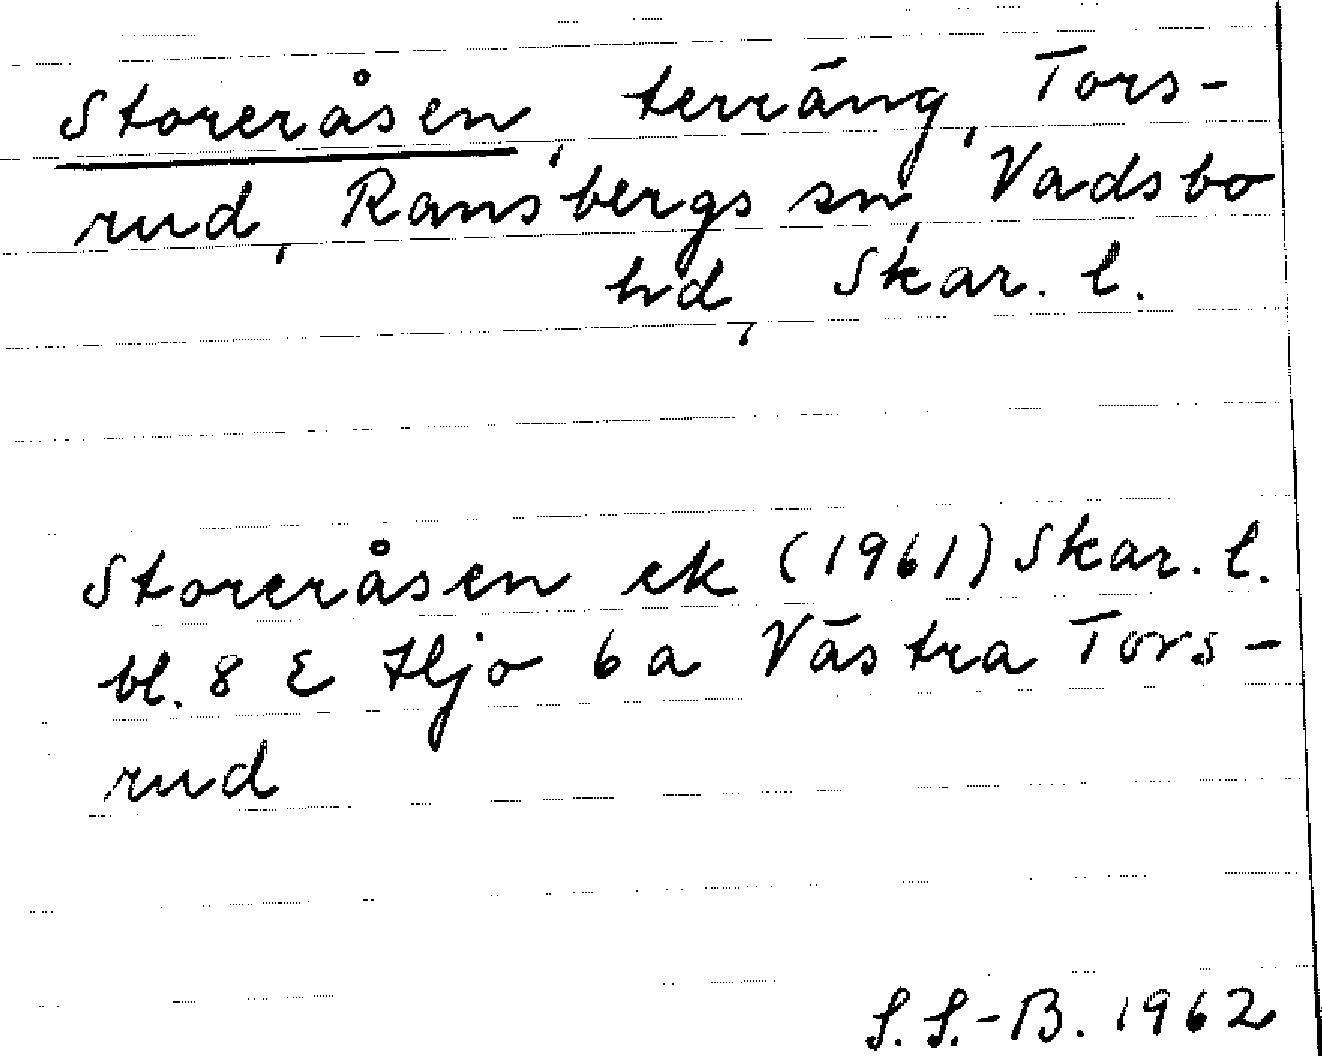 Storeråsen, terräng, Tors-
rud, Ransbergs sn, Vadsbo
hd, Skar. l.
Storeråsen ek (1961) Skar. l.
bl. 8 E Hjo 6a Västra Tors-
rud
S.S.-B. 1962